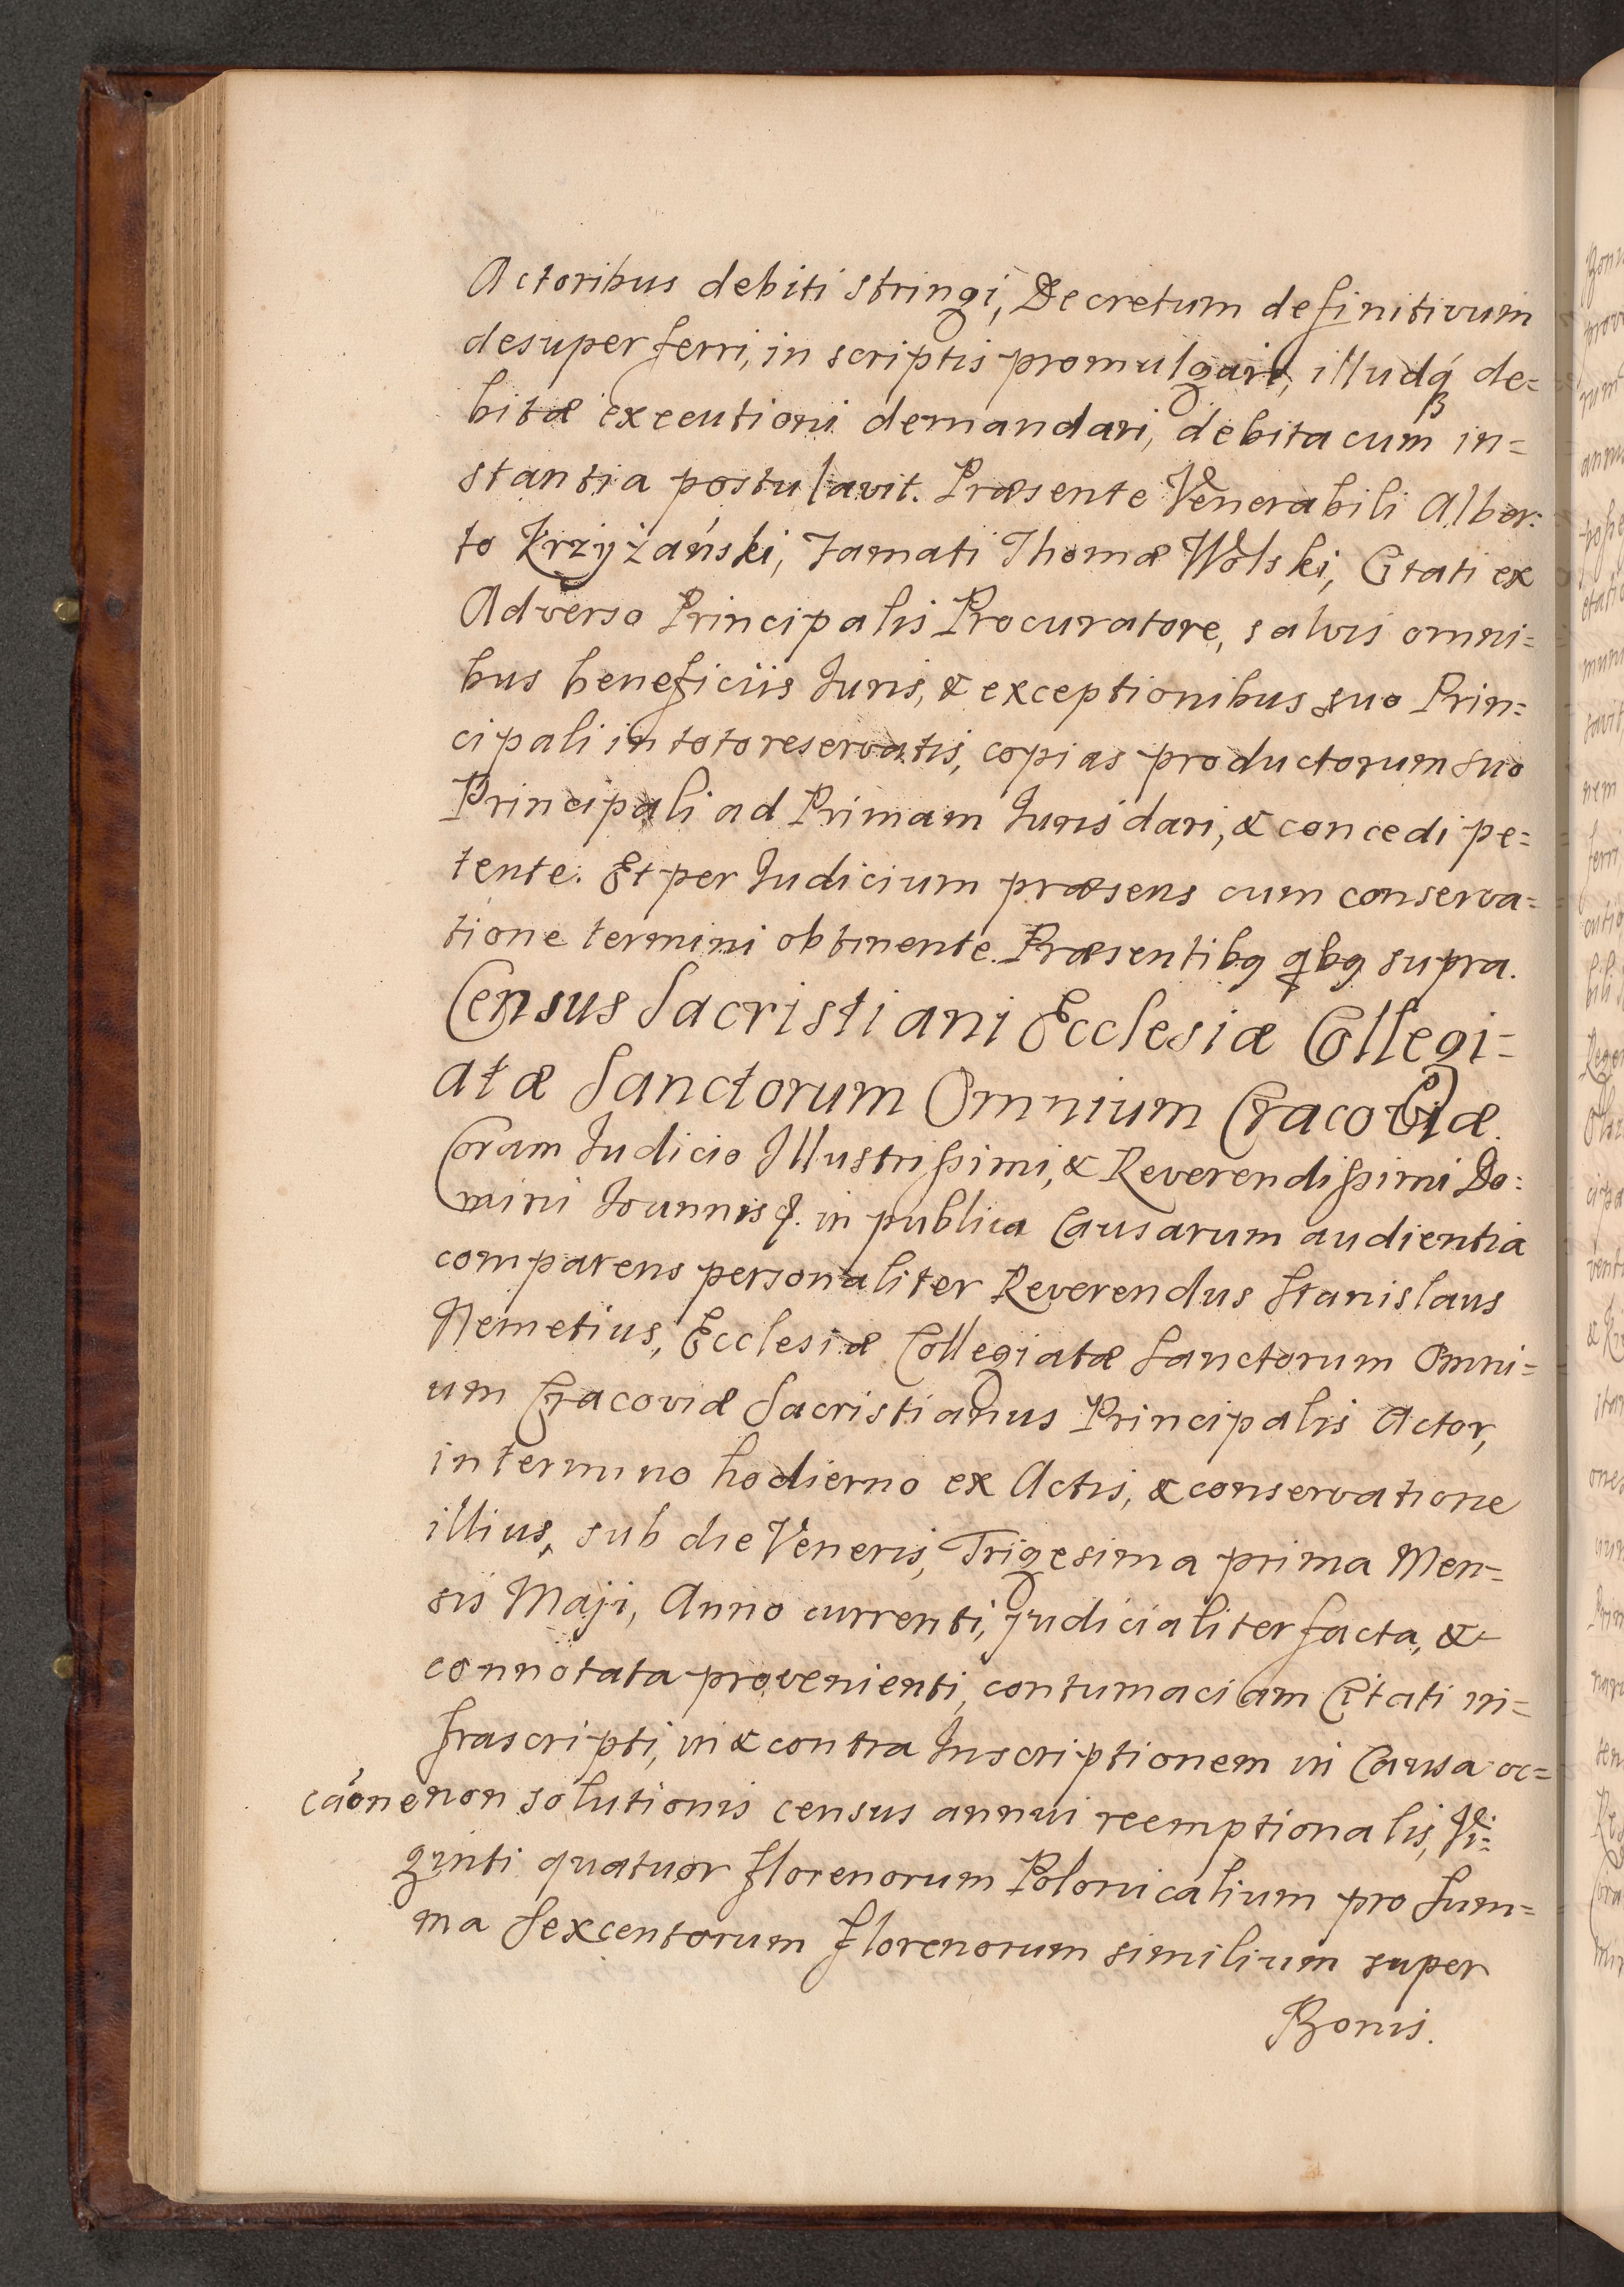 Actoribus debiti stringi, Decretum definitivum
desuper ferri, in scriptis promulgari, illudq́ de=
bitæ executioni demandari, debita cum in=
stantia postulavit. Præsente Venerabili Alber:
to Krzyżański, Famati Thomæ Wolski, Citati ex
Adverso Principalis Procuratore, salvis omni=
bus beneficiis Iuris, & exceptionibus suo Prin=
cipali in toto reservatis, copias productorum suo
Principali ad Primam Iuris dari, & concedi pe=
tente. Et per Iudicium præsens cum conserva=
tione termini obtinente. Præsentibq qbq supra.
Census Sacristiani Ecclesiæ Collegi=
atæ Sanctorum Omnium Cracoviæ.
Coram Iudicio Illustrißimi, & Reverendißimi Do:
mini Ioannis in publica Causarum audientia
comparens personaliter Reverendus Stanislaus
Nemetius, Ecclesiæ Collegiatæ Sanctorum Omni=
um Cracoviæ Sacristianus Principalis Actor,
in termino hodierno ex Actis, & conservatione
illius, sub die Veneris, Trigesima prima Men=
sis Maji, Anno currenti, judicialiter facta, &
connotata provenienti, contumaciam Citati in=
frascripti, in & contra Inscriptionem in Causa oc=
cáone non solutionis census annui reemptionalis, Vi=
ginti quatuor florenorum Polonicalium pro Sum=
ma Sexcentorum florenorum similium super
Bonis.